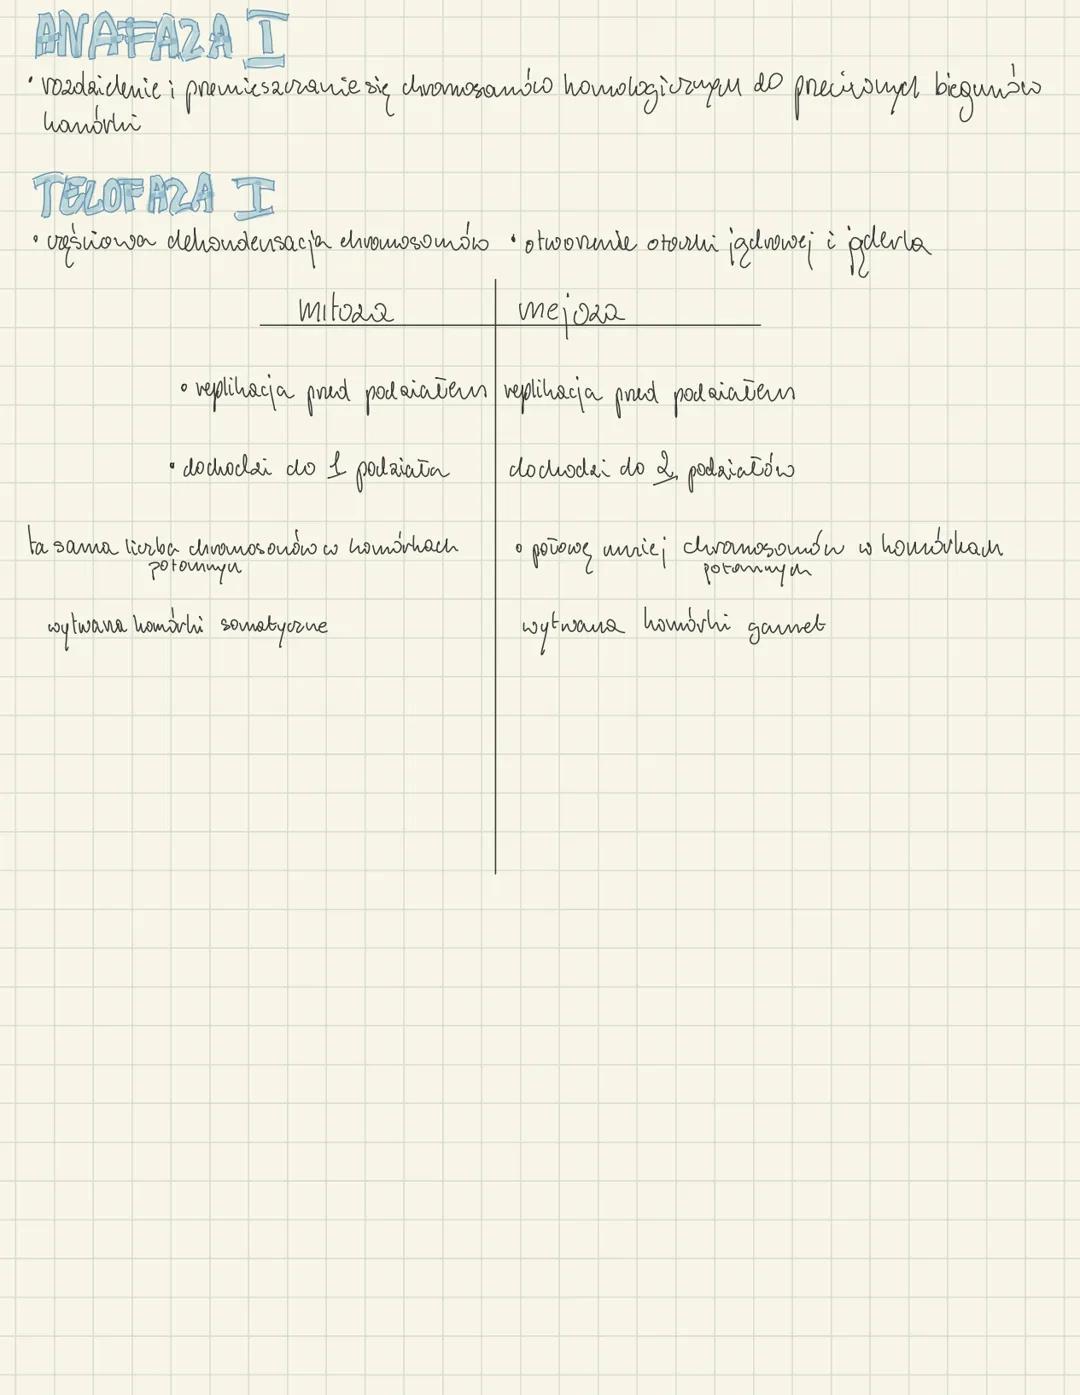 ANAFAZA I
• rozdzielenie i przemieszczanie się chromosomów homologicznych do przeciwnych biegunów
komórki
TELOFAZA I
• częściowa dekondensacja chromosomów • otworzenie otoczki jądrowej i jąderka
mitoza mejoza
• replikacja przed podziałem replikacja przed podziałem
• dochodzi do 1 podziału dochodzi do 2 podziałów
ta sama liczba chromosomów w komórkach • połowę mniej chromosomów w komórkach
potomnych potomnych
wytwarza komórki somatyczne wytwarza komórki gamet